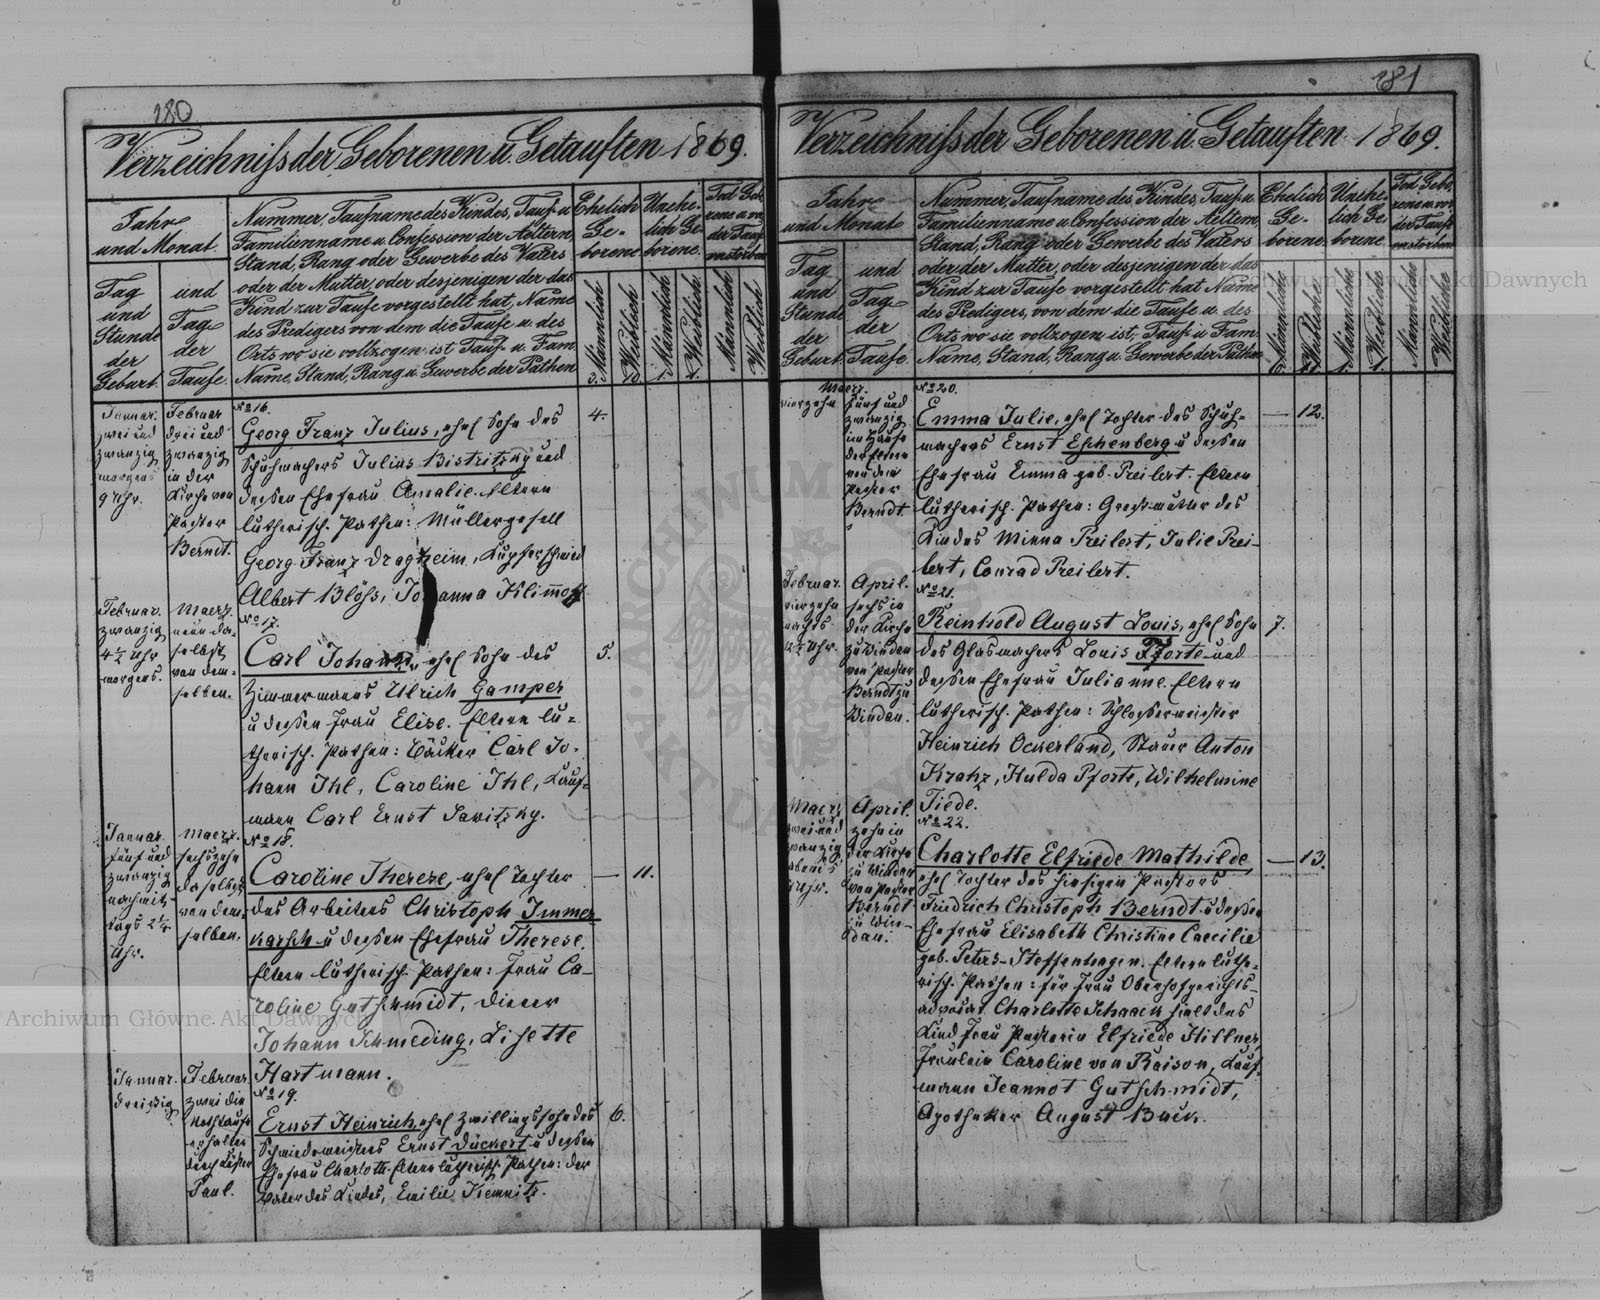 180
Verzeichniss der Geborenen u. Getauften 1869.
Jahr
und Monat.
Tag
und
Stunde
der
Geburt.
und
Tag
der
Taufe.
Nummer, Taufname des Kindes, Tauf- u.
Familienname u. Confession der Aeltern,
Stand, Rang oder Gewerbe des Vaters
oder der Mutter, oder desjenigen der das
Kind zur Taufe vorgestellt hat, Name
des Predigers von dem die Taufe u. des
Orts wo sie vollzogen ist, Tauf- u. Fam.
Name, Stand, Rang u. Gewerbe der Pathen
Ehelich
Ge-
borene.
Unehe-
lich Ge-
borene.
Tod Geb-
orene u. vor
der Taufe
verstorbene
Männlich
Weiblich
Männlich
Weiblich
Männlich
Weiblich
3. 10. 1. 1.
Januar.
zwei und
zwanzig
morgens
9 Uhr.
Februar
drei und
zwanzig
in der
Kirche von
Pastor
Berndt.
No 16.
Georg Franz Julius, ehel. Sohn des
Schuhmachers Julius Bistritzky und
dessen Ehefrau Amalie. Eltern
lutherisch. Pathen: Müllergesell
Georg Franz Dragheim, Kupferschmied
Albert Blöss, Johanna Klimmoff
4.
Februar.
zwanzig
4½ Uhr
morgens.
Maerz.
neun da-
selbst
von dem-
selben.
No 17.
Carl Johann, ehel. Sohn des
Zimmermanns Ulrich Gamper
u. dessen Frau Elise. Eltern lu-
therisch. Pathen: Bäcker Carl Jo-
hann Ihl, Caroline Ihl, Kauf-
mann Carl Ernst Sawitzky.
5.
Januar.
fünf und
zwanzig
nachmit-
tags 2¼
Uhr.
Maerz.
sechszehn
daselbst
von dem-
selben.
No 18.
Caroline Therese, ehel. Tochter
des Arbeiters Christoph Immer-
karsch u. dessen Ehefrau Therese.
Eltern lutherisch. Pathen: Frau Ca-
roline Gutschmidt, Diener
Johann Schmeding, Lisette
Hartmann.
— 11.
Januar.
dreissig
Februar.
zwei die
Nothtaufe
erhalten
durch Küster
Paul.
No 19.
Ernst Heinrich, ehel. Zwillingssohn des
Schmiedemeisters Ernst Dückert u. dessen
Ehefrau Charlotte. Eltern lutherisch. Pathen: der
Vater des Kindes, Emilie Kiemnitz.
6.
181
Verzeichniss der Geborenen u. Getauften 1869.
Jahr
und Monat
Tag
und
Stunde
der
Geburt.
und
Tag
der
Taufe.
Nummer, Taufname des Kindes, Tauf- u.
Familienname u. Confession der Aeltern,
Stand, Rang oder Gewerbe des Vaters
oder der Mutter, oder desjenigen der das
Kind zur Taufe vorgestellt hat, Name
des Predigers, von dem die Taufe u. des
Orts wo sie vollzogen ist, Tauf- u. Fam.
Name, Stand, Rang u. Gewerbe der Pathen
Ehelich
Ge-
borene.
Unehe-
lich Ge-
borene.
Tod Gebo-
rene u. vor
der Taufe
verstorbene
Männliche
Weibliche
Männliche
Weibliche
Männliche
Weibliche
6. 11. 1. 1.
Maerz.
vierzehn
fünf und
zwanzig
im Hause
der Eltern
von dem
Pastor
Berndt.
No 20.
Emma Julie, ehel. Tochter des Schuh-
machers Ernst Eschenberg u. dessen
Ehefrau Emma geb. Preilert. Eltern
lutherisch. Pathen: Grossmutter des
Kindes Minna Preilert, Julie Prei-
lert, Conrad Preilert.
— 12.
Februar.
vierzehn
nachts
Uhr.
April.
sechs in
der Kirche
zu Windau
von Pastor
Berndt zu
Windau.
No 21.
Reinhold August Louis, ehel. Sohn
des Glasmachers Louis Pforte und
dessen Ehefrau Julianne. Eltern
lutherisch. Pathen: Schlossermeister
Heinrich Ockerland, Stauer Anton
Krahz, Hulda Pforte, Wilhelmine
Tiede.
7.
Maerz
zwei und
zwanzig
abends
Uhr.
April.
zehn in
der Kirche
zu Windau
von Pastor
Berndt
zu Win-
dau.
No 22.
Charlotte Elfriede Mathilde,
ehel. Tochter des hiesigen Pastors
Friedrich Christoph Berndt u. dessen
Ehefrau Elisabeth Christine Caecilie
geb. Peters-Steffenhagen. Eltern luthe-
risch. Pathen: für Frau Oberhofgerichts-
advocat Charlotte Schaack hielt das
Kind Frau Pastorin Elfriede Hillner,
Fräulein Caroline von Raison, Kauf-
mann Jeannot Gutschmidt,
Apotheker August Buck.
— 13.
Archiwum Główne Akt Dawnych